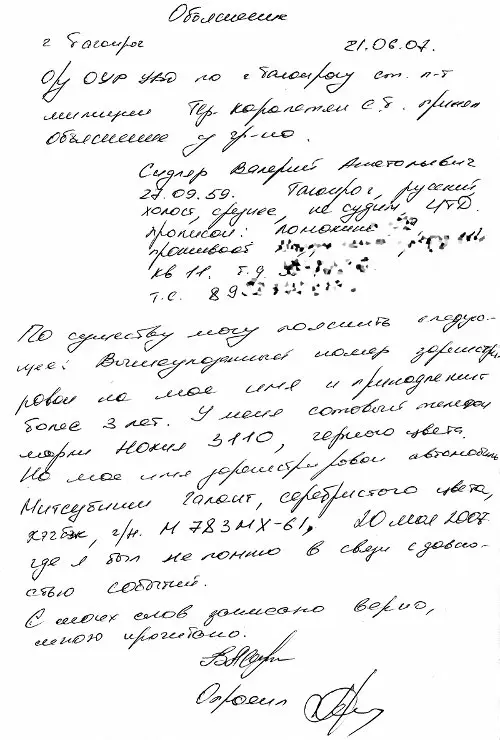 Объяснение
г Таганрог 21.06.07.
О/у ОУР УВД по г Таганрогу ст. л-т
милиции Тер-Карапетян С.Г. принял
объяснение у гр-на.
Сидлер Валерий Анатольевич
27.09.59. Таганрог, русский
холост, среднее, не судим ЧТД.
прописан: Ломакина
проживает
кв 11. т.д.
т.с. 89
По существу могу пояснить следую-
щее: Вышеуказанный номер зарегистри
рован на мое имя и принадлежит
более 3 лет. У меня сотовый телефон
марки Нокия 3110, черного цвета.
На мое имя зарегистрирован автомобиль
Митсубиши Галант, серебристого цвета,
хэтчбэк, г/н. М 783 МХ-61, 20 мая 2007
где я был не помню в связи с давно-
стью событий.
С моих слов записано верно,
мною прочитано.
Опросил